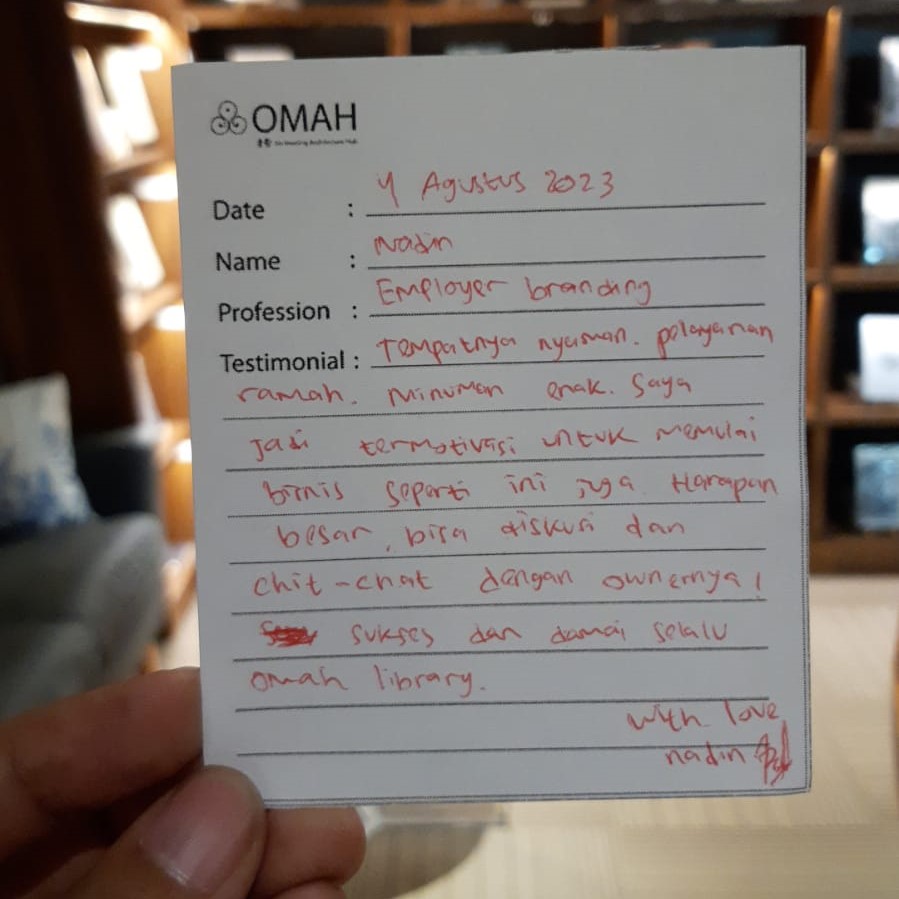 OMAH
An Amazing Architecture Hub
Date : 4 Agustus 2023
Name : Nadin
Profession : Employer branding
Testimonial : Tempatnya nyaman. pelayanan
ramah. Minuman enak. Saya
jadi termotivasi untuk memulai
bisnis seperti ini juga. Harapan
besar, bisa diskusi dan
chit-chat dengan ownernya!
sukses dan damai selalu
omah library.
with love
nadin